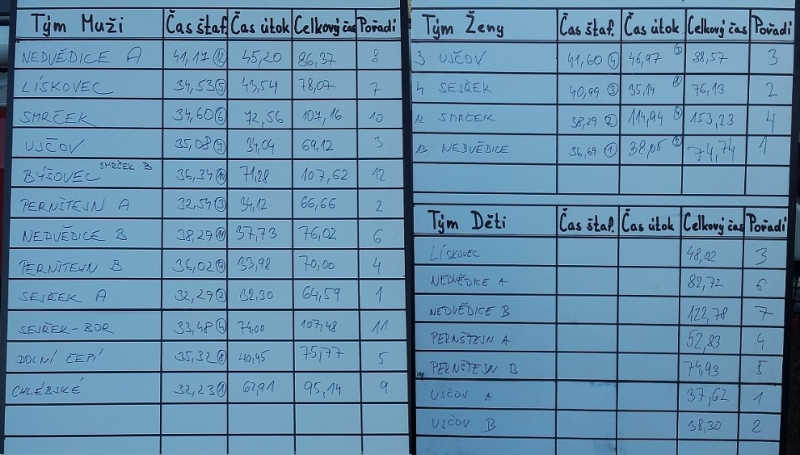 Tým Muži Čas štaf. Čas útok Celkový čas Pořadí
NEDVĚDICE A 41,17 12 45,20 86,37 8
LÍSKOVEC 34,53 5 43,54 78,07 7
SMRČEK 34,60 6 72,56 107,16 10
UJČOV 35,08 7 34,04 69,12 3
BÝŠOVEC SMRČEK B 36,34 71,28 107,62 12
PERNŠTEJN A 32,54 3 34,12 66,66 2
NEDVĚDICE B 38,29 11 37,73 76,02 6
PERNŠTEJN B 36,02 9 33,98 70,00 4
SEJŘEK A 32,29 2 32,30 64,59 1
SEJŘEK-BOR 33,48 4 74,00 107,48 11
DOLNÍ ČEPÍ 35,32 8 40,45 75,77 5
CHLÉBSKÉ 32,23 1 62,91 95,14 9
Tým Ženy Čas štaf. Čas útok Celkový čas Pořadí
3 UJČOV 41,60 4 46,97 88,57 3
4 SEJŘEK 40,99 3 35,14 76,13 2
12 SMRČEK 38,29 2 114,94 153,23 4
13 NEDVĚDICE 36,69 1 38,05 74,74 1
Tým Děti Čas štaf. Čas útok Celkový čas Pořadí
LÍSKOVEC 48,02 3
NEDVĚDICE A 82,72 6
NEDVĚDICE B 122,78 7
PERNŠTEJN A 52,83 4
PERNŠTEJN B 74,93 5
UJČOV A 37,62 1
UJČOV B 38,30 2